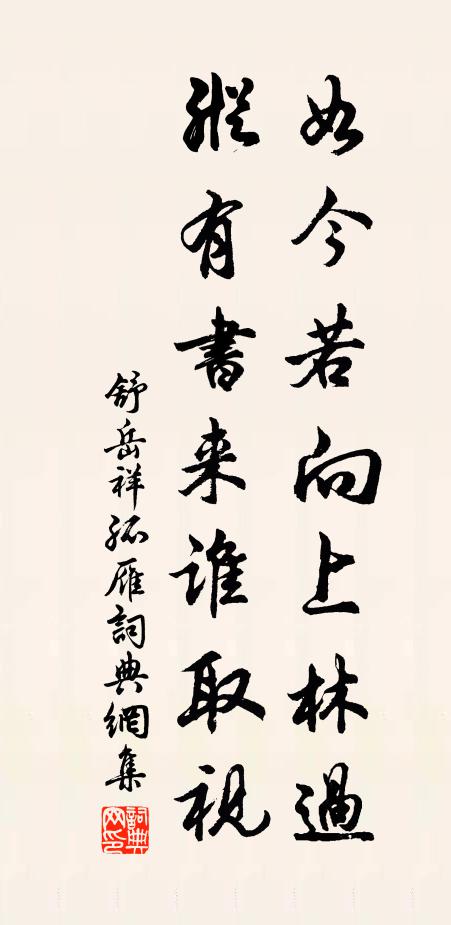 如今若向上林過
縱有書来誰取視
舒岳祥孤雁詞典網集
詞典網印